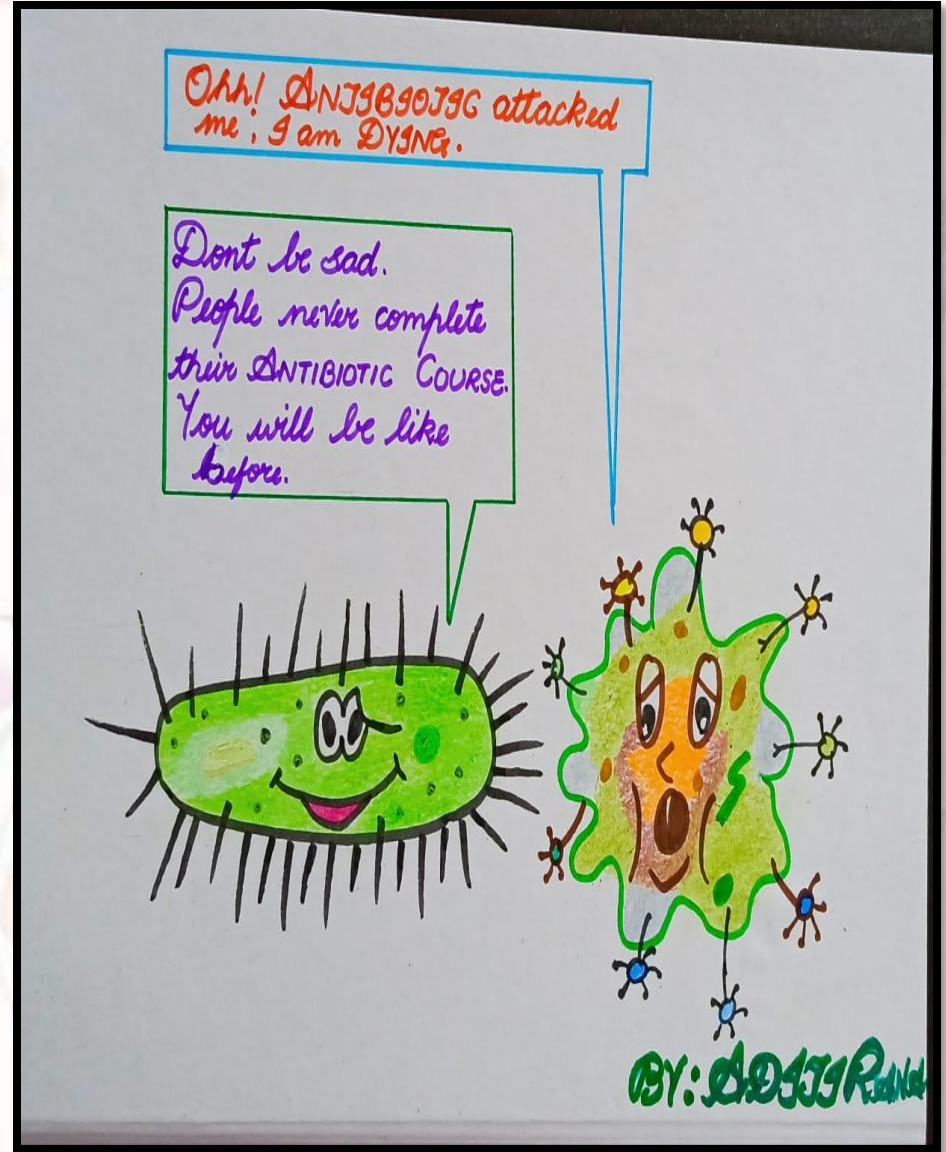 Ohh! ANTIBIOTIC attacked
me; I am DYING.
Dont be sad.
People never complete
their ANTIBIOTIC COURSE.
You will be like
before.
BY: ADITI